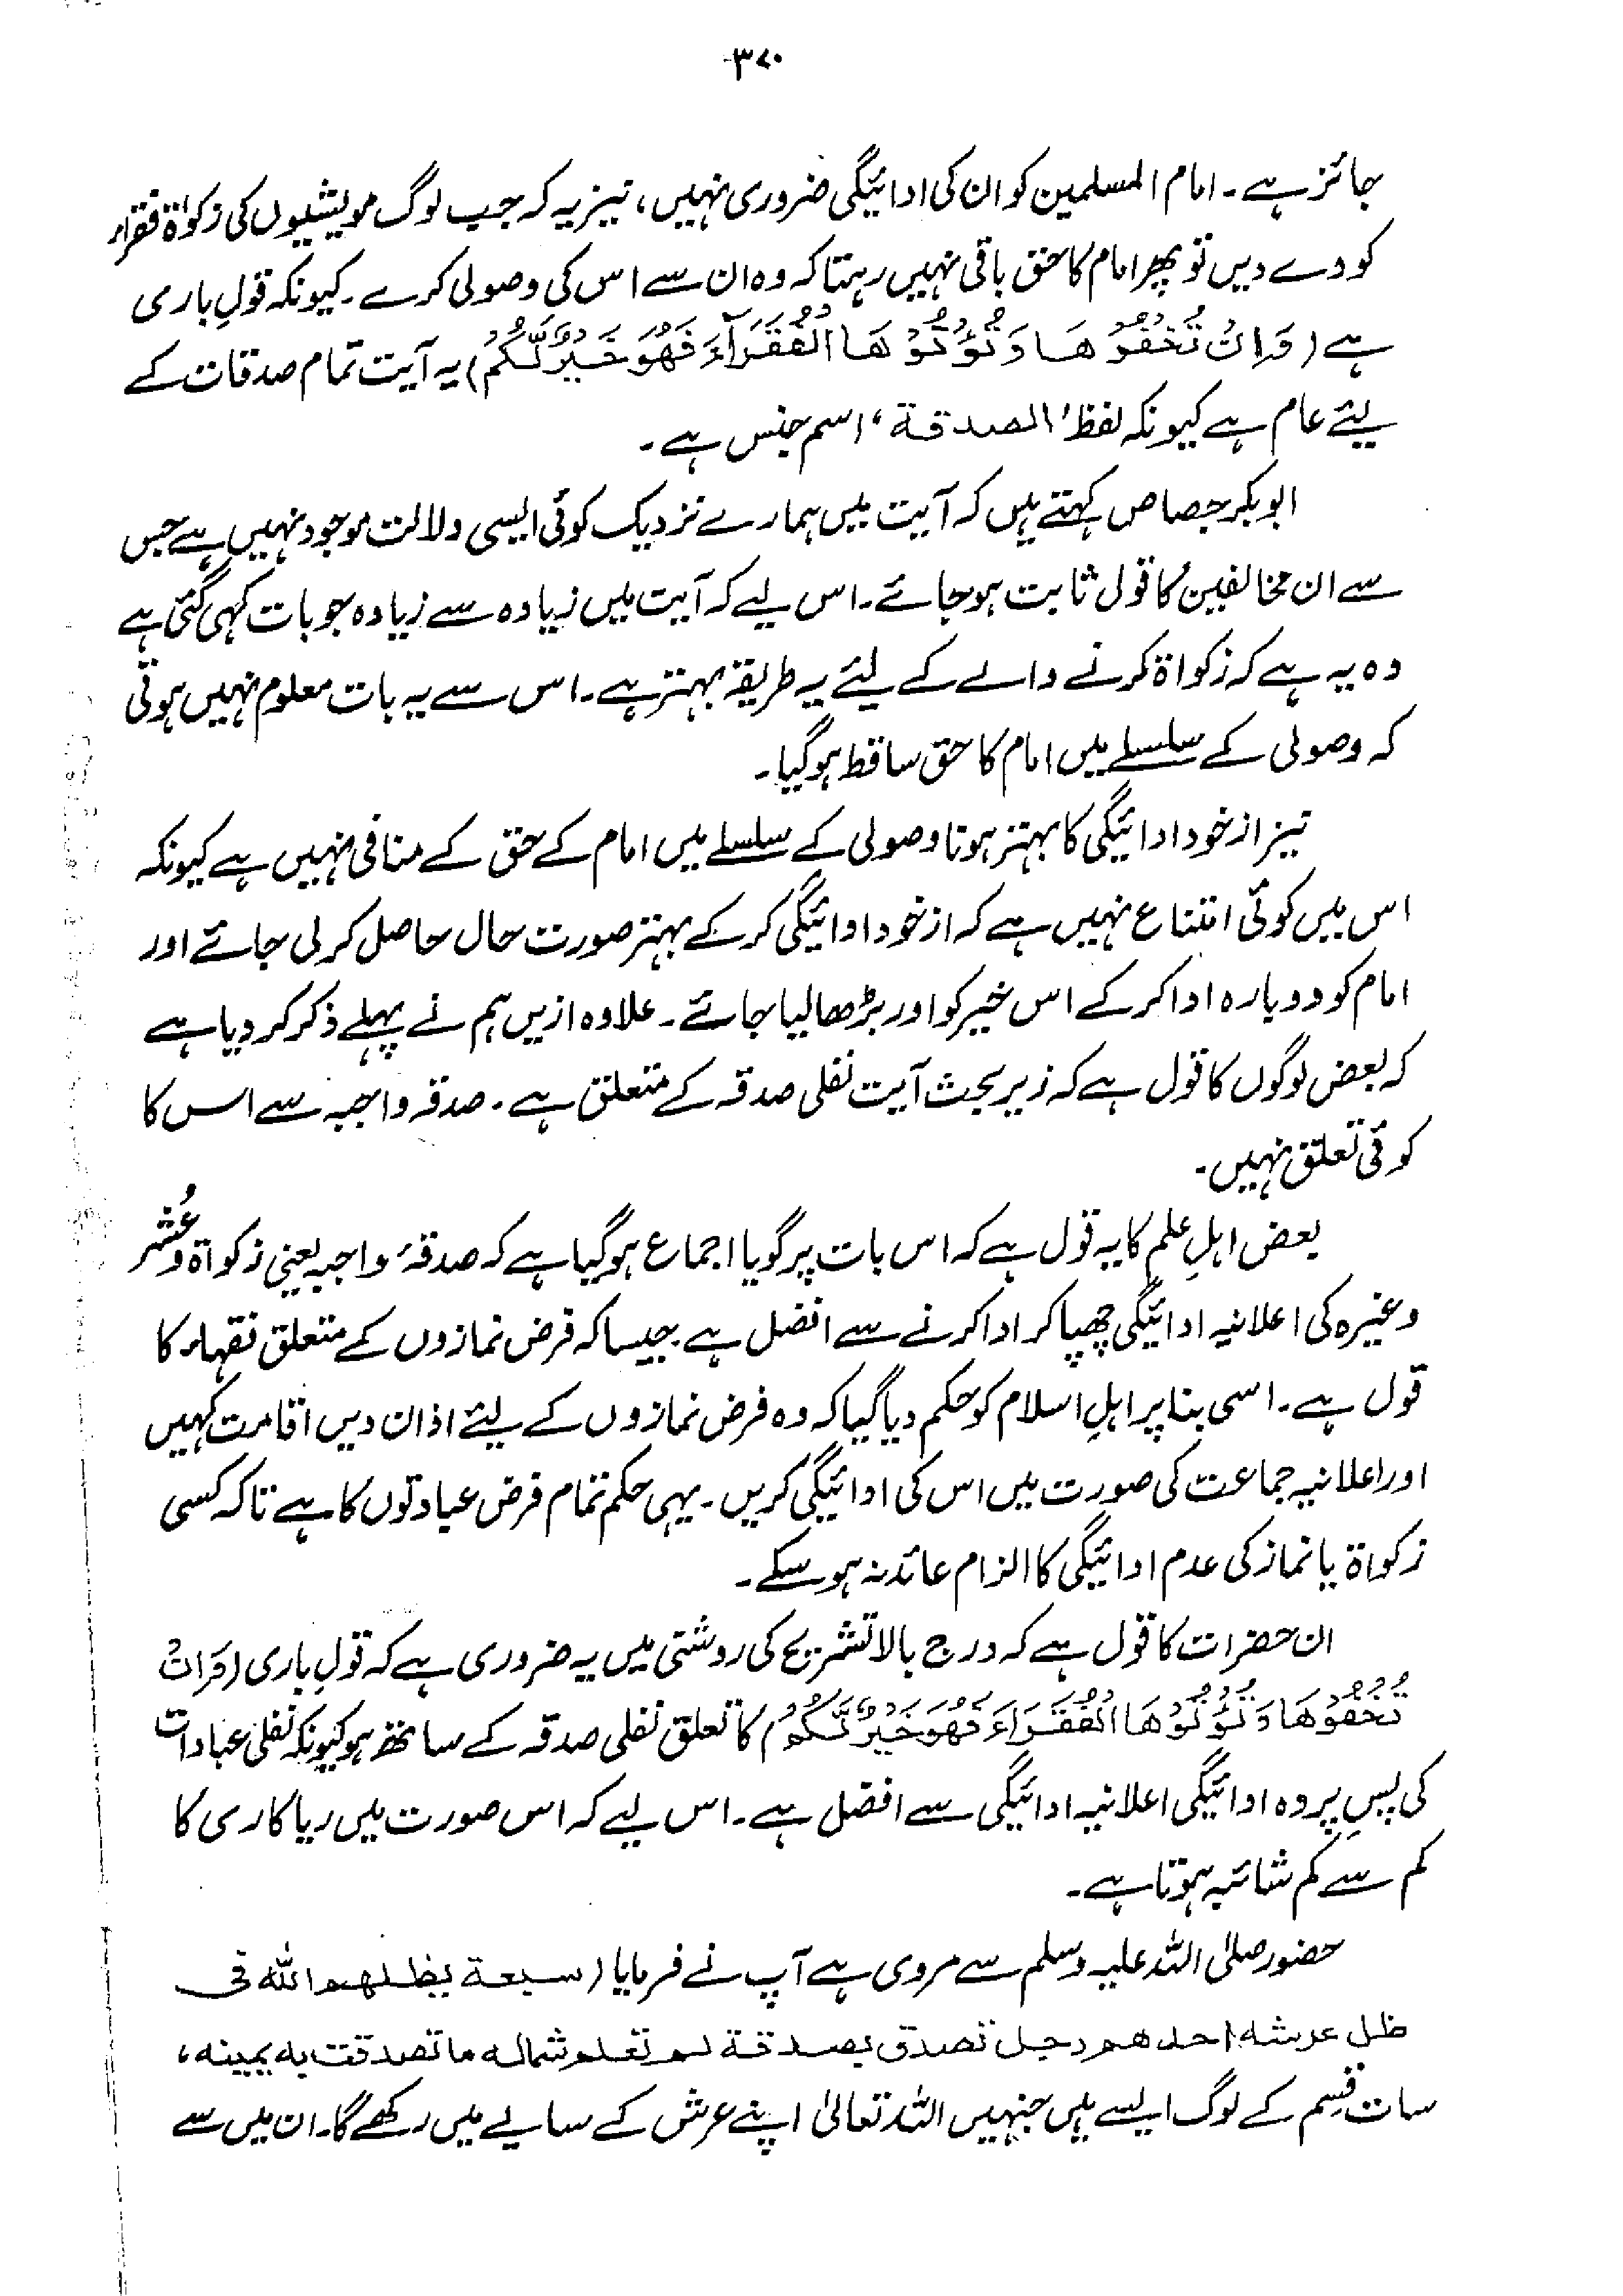 ۳۷۰
جائز ہے۔ امام المسلمین کو ان کی ادائیگی ضروری نہیں، نیز یہ کہ جب لوگ مویشیوں کی زکواۃ فقراء
کو دے دیں تو پھر امام کا حق باقی نہیں رہتا کہ وہ ان سے اس کی وصولی کرے۔ کیونکہ قولِ باری
ہے (وَاِنْ تُخْفُوْهَا وَتُؤْتُوْهَا الْفُقَرَآءَ فَهُوَ خَيْرٌ لَّكُمْ) یہ آیت تمام صدقات کے
لیئے عام ہے کیونکہ لفظ 'الصدقة' اسم جنس ہے۔
ابوبکر جصاص کہتے ہیں کہ آیت میں ہمارے نزدیک کوئی ایسی دلالت موجود نہیں ہے جس
سے ان مخالفین کا قول ثابت ہو جائے۔ اس لیے کہ آیت میں زیادہ سے زیادہ جو بات کہی گئی ہے
وہ یہ ہے کہ زکواۃ کرنے والے کے لیئے یہ طریقہ بہتر ہے۔ اس سے یہ بات معلوم نہیں ہوتی
کہ وصولی کے سلسلے میں امام کا حق ساقط ہو گیا۔
نیز از خود ادائیگی کا بہتر ہونا وصولی کے سلسلے میں امام کے حق کے منافی نہیں ہے کیونکہ
اس میں کوئی امتناع نہیں ہے کہ از خود ادائیگی کر کے بہتر صورت حال حاصل کر لی جائے اور
امام کو دوبارہ ادا کر کے اس خیر کو اور بڑھا لیا جائے۔ علاوہ ازیں ہم نے پہلے ذکر کر دیا ہے
کہ بعض لوگوں کا قول ہے کہ زیر بحث آیت نفلی صدقہ کے متعلق ہے۔ صدقہ واجبہ سے اس کا
کوئی تعلق نہیں۔
بعض اہلِ علم کا یہ قول ہے کہ اس بات پر گویا اجماع ہو گیا ہے کہ صدقۂ واجبہ یعنی زکواۃ و عُشر
وغیرہ کی اعلانیہ ادائیگی چھپا کر ادا کرنے سے افضل ہے جیسا کہ فرض نمازوں کے متعلق فقہاء کا
قول ہے۔ اسی بنا پر اہلِ اسلام کو حکم دیا گیا کہ وہ فرض نمازوں کے لیئے اذان دیں اقامت کہیں
اور اعلانیہ جماعت کی صورت میں اس کی ادائیگی کریں۔ یہی حکم تمام فرض عبادتوں کا ہے تاکہ کسی
زکواۃ یا نماز کی عدم ادائیگی کا الزام عائد نہ ہو سکے۔
ان حضرات کا قول ہے کہ درج بالا تشریح کی روشنی میں یہ ضروری ہے کہ قولِ باری (وَاِنْ
تُخْفُوْهَا وَتُؤْتُوْهَا الْفُقَرَاءَ فَهُوَ خَيْرٌ لَّكُمْ) کا تعلق نفلی صدقہ کے ساتھ ہو کیونکہ نفلی عبادات
کی پسِ پردہ ادائیگی اعلانیہ ادائیگی سے افضل ہے۔ اس لیے کہ اس صورت میں ریاکاری کا
کم سے کم شائبہ ہوتا ہے۔
حضور صلی اللہ علیہ وسلم سے مروی ہے آپ نے فرمایا (سبعة يظلهم الله فى
ظل عرشه احدهم رجل تصدق بصدقة لم تعلم شماله ما تصدقت به يمينه،
سات قسم کے لوگ ایسے ہیں جنہیں اللہ تعالیٰ اپنے عرش کے سایے میں رکھے گا۔ ان میں سے